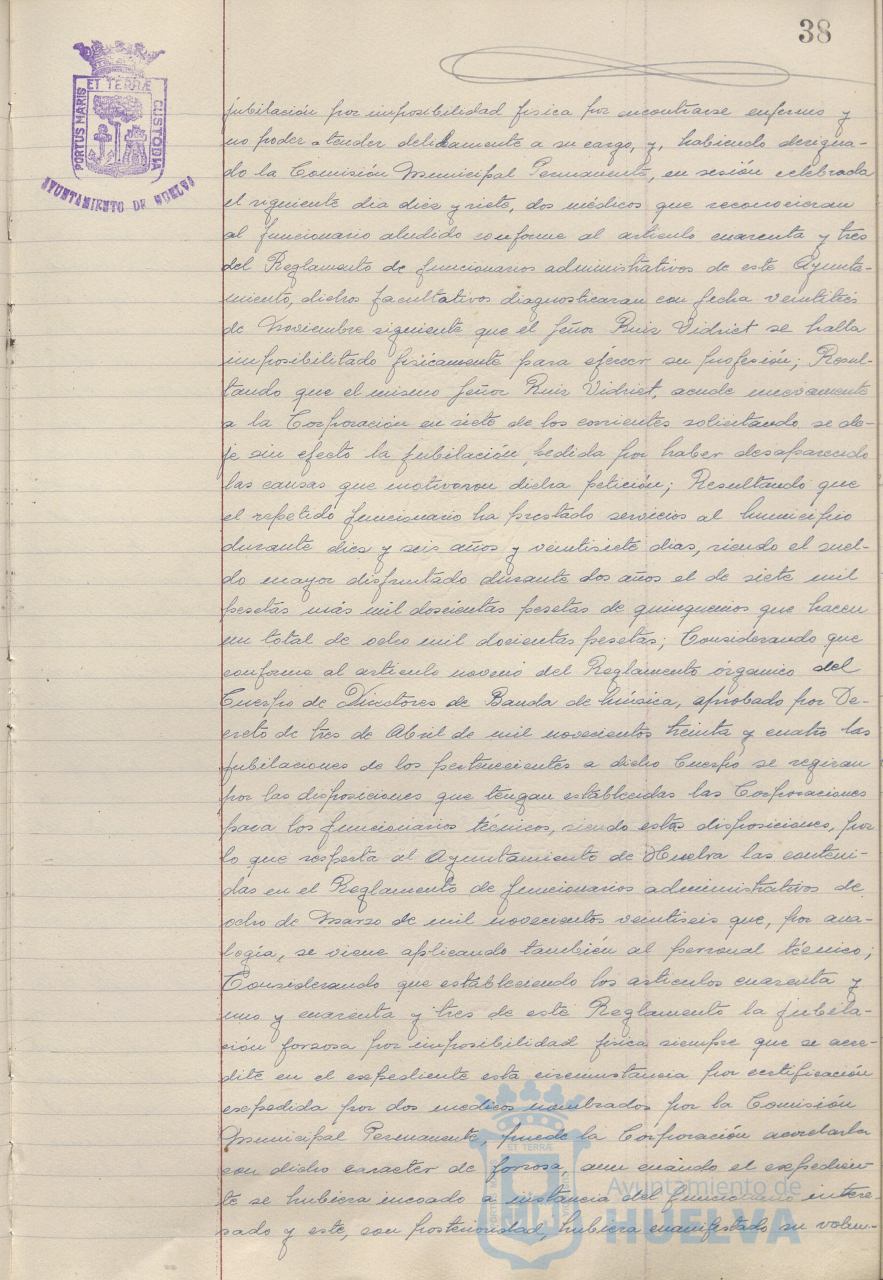 38
ET TERRÆ
PORTUS MARIS
CUSTODIA
AYUNTAMIENTO DE HUELVA
jubilación por imposibilidad fisica por encontrarse enfermo y
no poder atender debidamente a su cargo, y, habiendo designa-
do la Comisión Municipal Permanente, en sesión celebrada
el siguiente dia diez y siete, dos médicos que reconocieran
al funcionario aludido conforme al articulo cuarenta y tres
del Reglamento de funcionarios administrativos de este Ayunta-
miento, dichos facultativos diagnosticaran con fecha veintitres
de Noviembre siguiente que el Señor Ruiz Vidriet se halla
imposibilitado fisicamente para ejercer su profesión; Resul-
tando que el mismo Señor Ruiz Vidriet, acude nuevamente
a la Corporación en siete de los corrientes solicitando se de-
je sin efecto la jubilación pedida por haber desaparecido
las causas que motivaron dicha petición; Resultando que
el repetido funcionario ha prestado servicios al Municipio
durante diez y seis años y veintisiete dias, siendo el suel-
do mayor disfrutado durante dos años el de siete mil
pesetas más mil doscientas pesetas de quinquenios que hacen
un total de ocho mil docientas pesetas; Considerando que
conforme al articulo noveno del Reglamento órganico del
Cuerpo de Directores de Banda de Música, aprobado por De-
creto de tres de Abril de mil novecientos treinta y cuatro las
jubilaciones de los pertenecientes a dicho Cuerpo se regiran
por las disposiciones que tengan establecidas las Corporaciones
para los funcionarios técnicos, siendo estas disposiciones, por
lo que respecta al Ayuntamiento de Huelva las conteni-
das en el Reglamento de funcionarios administrativos de
ocho de Marzo de mil novecientos veintiseis que, por ana-
logía, se viene aplicando también al personal técnico;
Considerando que estableciendo los articulos cuarenta y
uno y cuarenta y tres de este Reglamento la jubila-
ción forzosa por imposibilidad fisica siempre que se acre-
dite en el expediente esta circunstancia por certificación
expedida por dos medicos nombrados por la Comisión
Municipal Permanente, puede la Corporación acordarla
con dicho caracter de forzosa, aun cuándo el expedien-
te se hubiera incoado a instancia del funcionario intere-
sado y este, con posterioridad, hubiera manifestado su volun-
ET TERRÆ
Ayuntamiento de
HUELVA